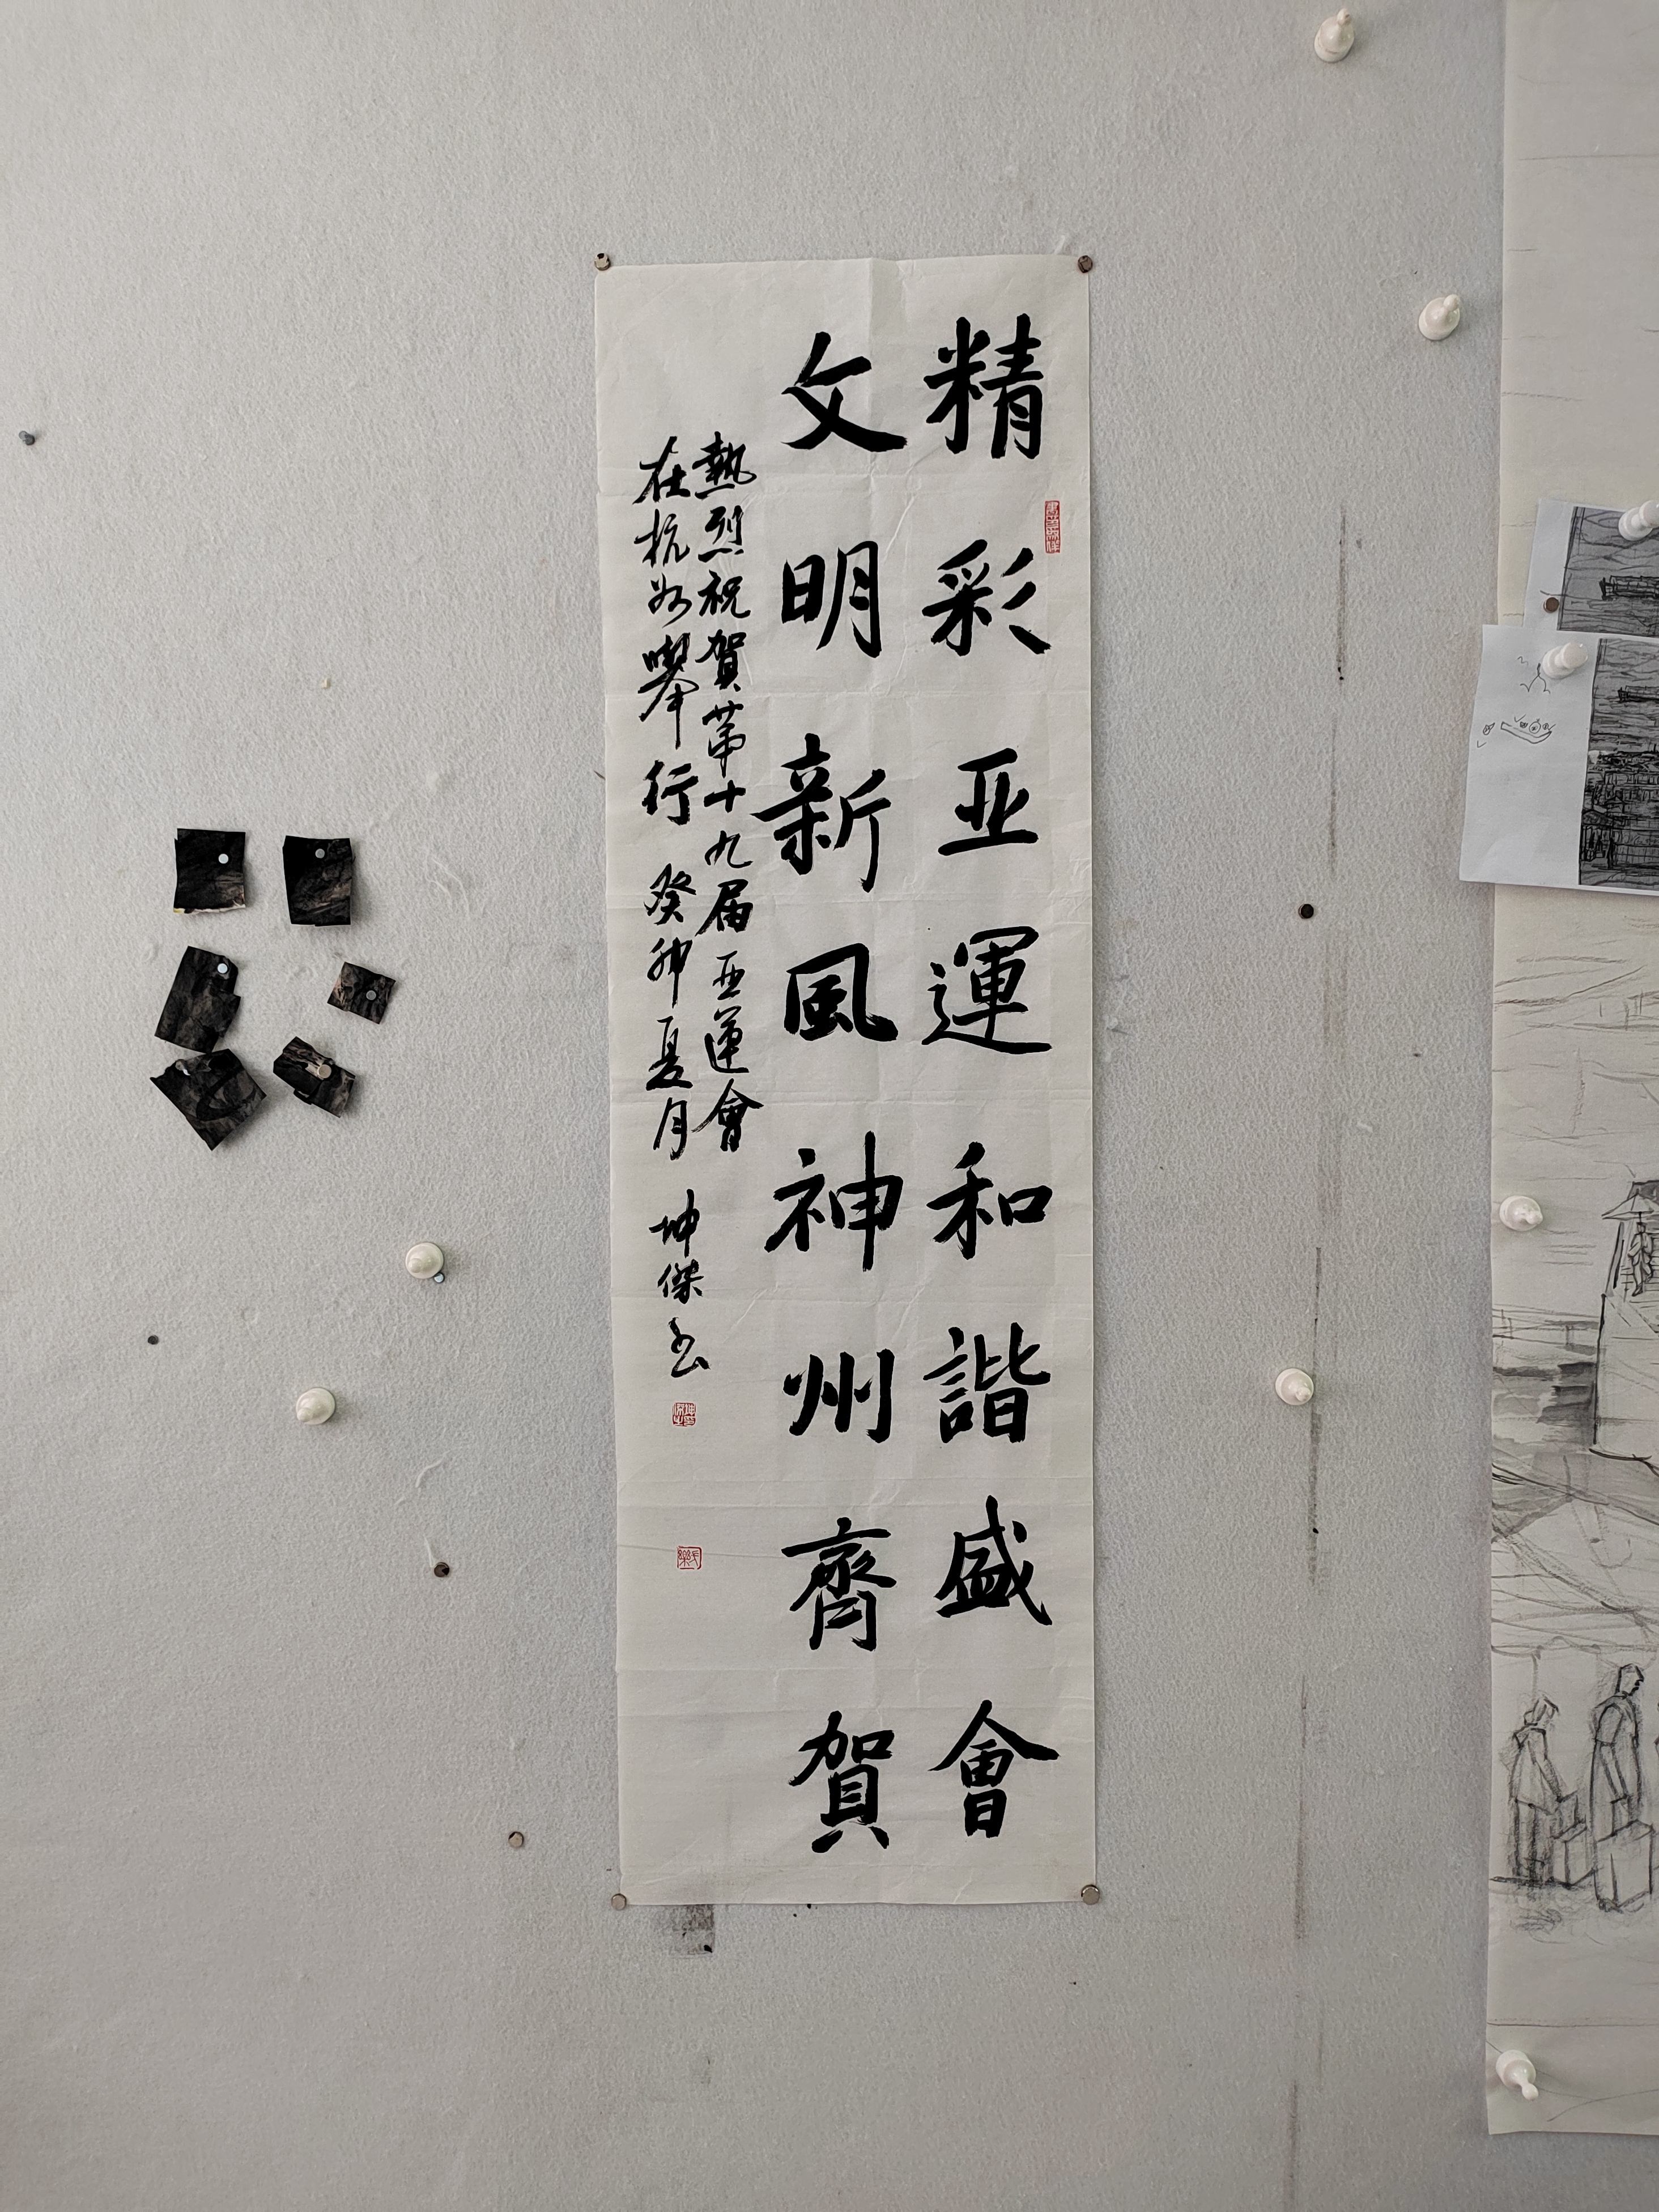 精彩亚運和諧盛會
文明新風神州齊賀
熱烈祝賀第十九届亚運會
在杭州舉行 癸卯夏月 坤傑书